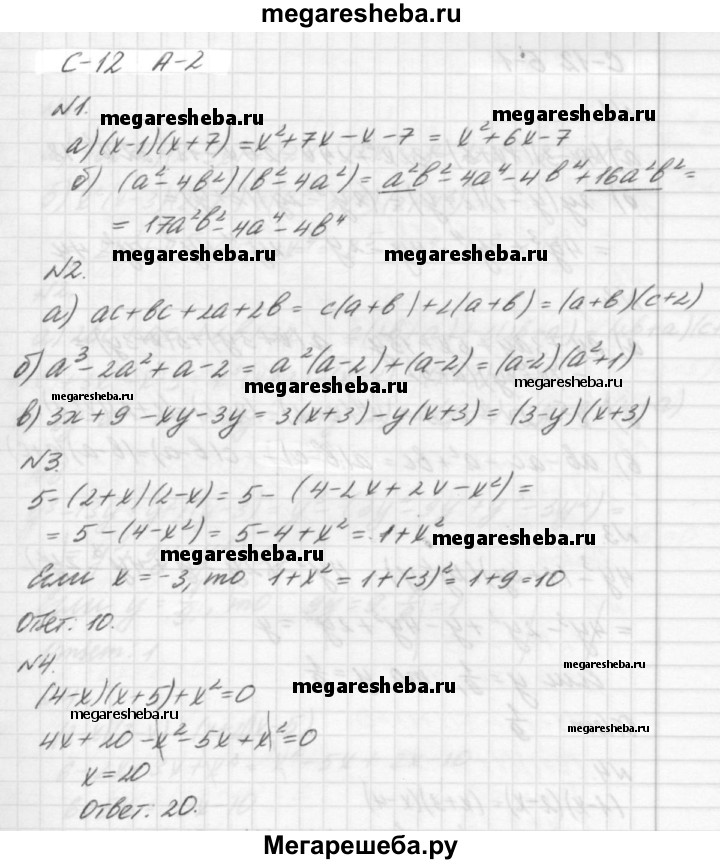 megaresheba.ru
С-12 А-2
№1.
megaresheba.ru megaresheba.ru
а) (x-1)(x+7) = x²+7x-x-7 = x²+6x-7
б) (a²-4b²)(b²-4a²) = a²b²-4a⁴-4b⁴+16a²b² =
= 17a²b²-4a⁴-4b⁴
megaresheba.ru megaresheba.ru
№2.
а) ac+bc+2a+2b = c(a+b)+2(a+b) = (a+b)(c+2)
б) a³-2a²+a-2 = a²(a-2)+(a-2) = (a-2)(a²+1)
megaresheba.ru megaresheba.ru
в) 3x+9-xy-3y = 3(x+3)-y(x+3) = (3-y)(x+3)
№3.
5-(2+x)(2-x) = 5-(4-2x+2x-x²) =
= 5-(4-x²) = 5-4+x² = 1+x²
megaresheba.ru
megaresheba.ru
Если x = -3, то 1+x² = 1+(-3)² = 1+9 = 10
Ответ: 10.
№4.
megaresheba.ru
(4-x)(x+5)+x²=0
megaresheba.ru
megaresheba.ru
4x+20-x²-5x+x²=0
megaresheba.ru
x=20
Ответ: 20.
Мегарешеба.ру